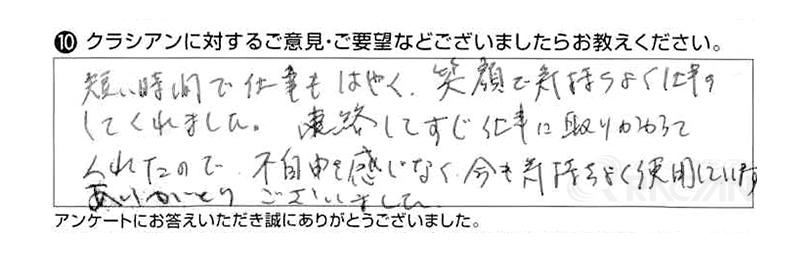 ⑩ クラシアンに対するご意見・ご要望などございましたらお教えください。
短い時間で仕事もはやく、笑顔で気持ちよく仕事を
してくれました。連絡してすぐ仕事に取りかかって
くれたので、不自由を感じなく、今も気持ちよく使用しています
ありがとうございました
アンケートにお答えいただき誠にありがとうございました。